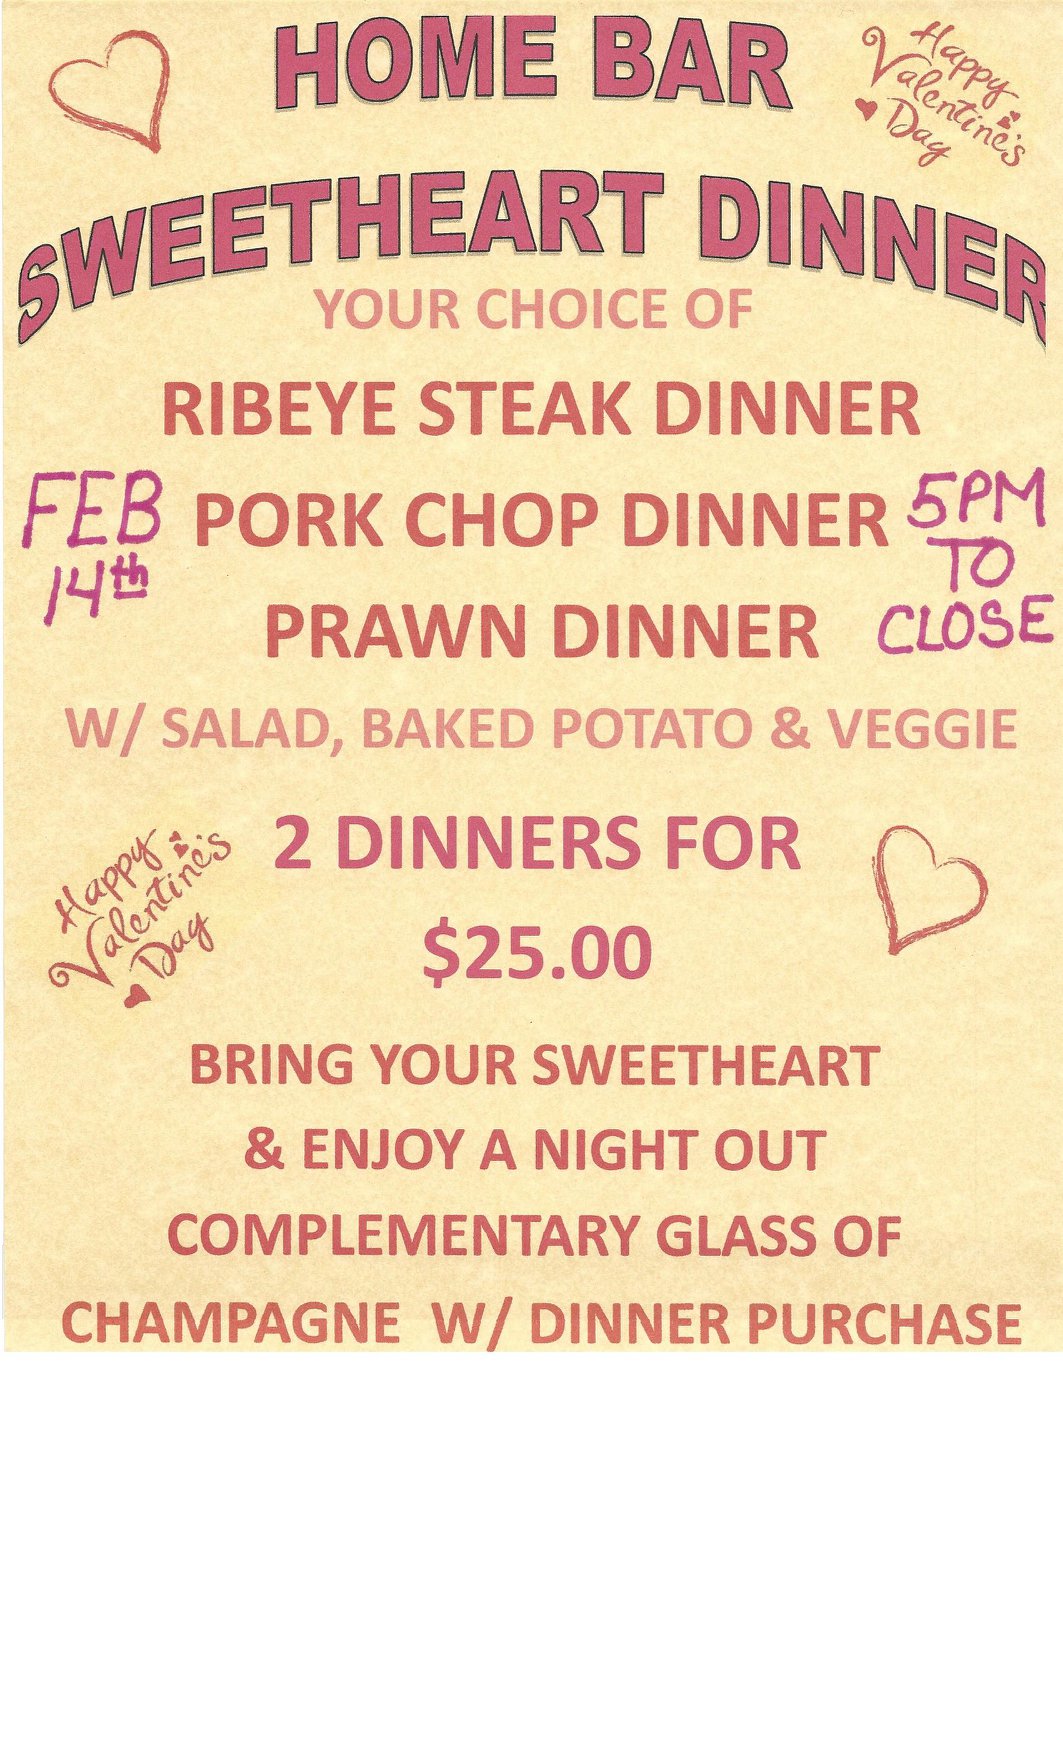 HOME BAR
Happy
Valentine's
Day
SWEETHEART DINNER
YOUR CHOICE OF
RIBEYE STEAK DINNER
FEB
14th
PORK CHOP DINNER
5PM
TO
CLOSE
PRAWN DINNER
W/ SALAD, BAKED POTATO & VEGGIE
2 DINNERS FOR
$25.00
Happy
Valentine's
Day
BRING YOUR SWEETHEART
& ENJOY A NIGHT OUT
COMPLEMENTARY GLASS OF
CHAMPAGNE W/ DINNER PURCHASE